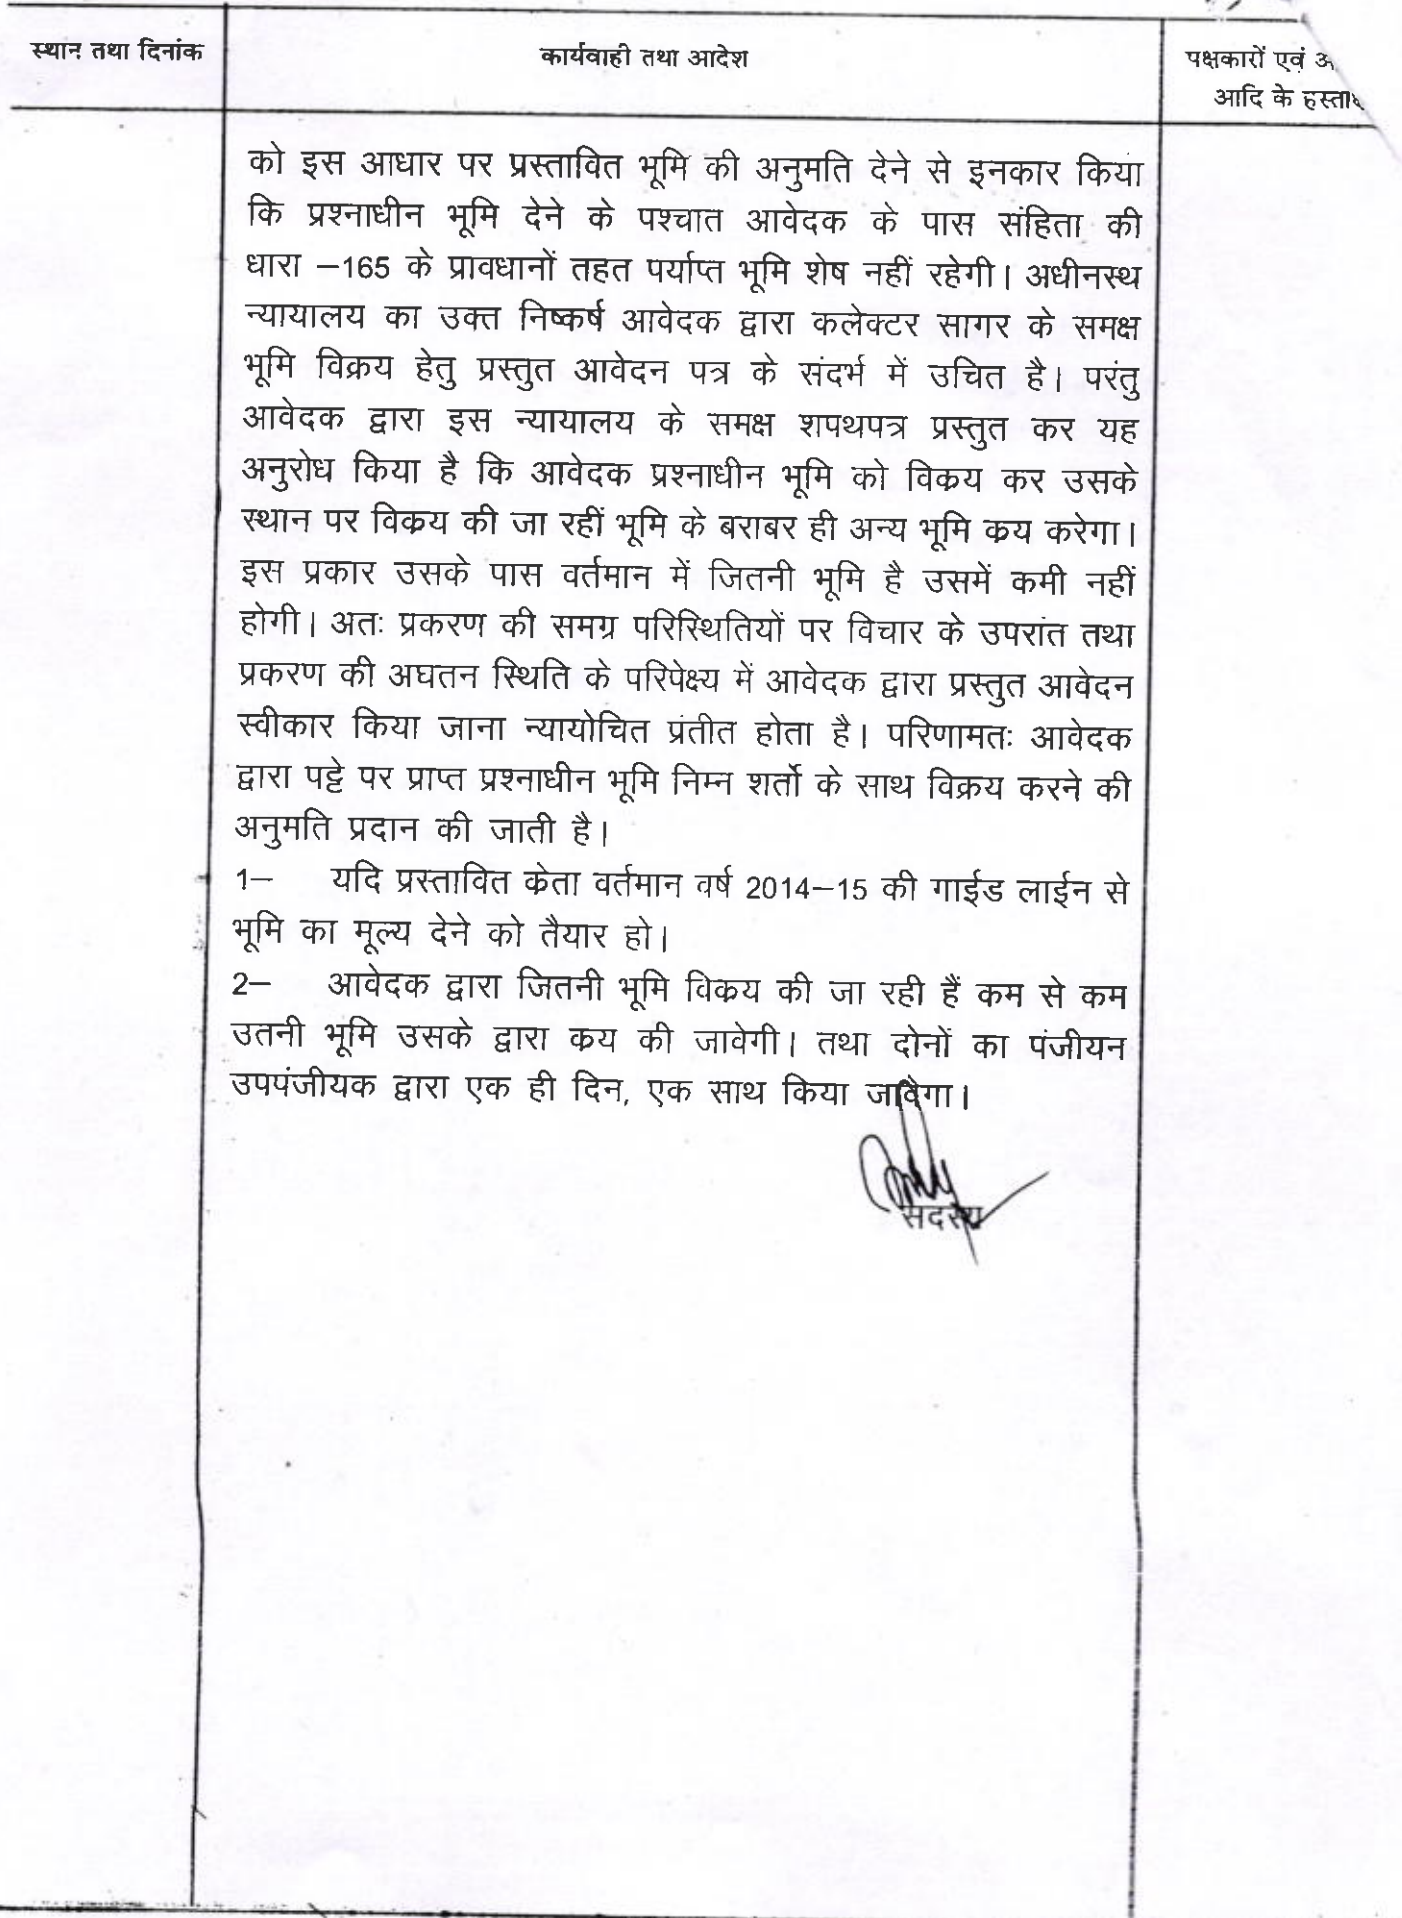 स्थान तथा दिनांक
कार्यवाही तथा आदेश
पक्षकारों एवं
आदि के
को इस आधार पर प्रस्तावित भूमि की अनुमति देने से इनकार किया
कि प्रश्नाधीन भूमि देने के पश्चात आवेदक के पास संहिता की
धारा –165 के प्रावधानों तहत पर्याप्त भूमि शेष नहीं रहेगी। अधीनस्थ
न्यायालय का उक्त निष्कर्ष आवेदक द्वारा कलेक्टर सागर के समक्ष
भूमि विक्रय हेतु प्रस्तुत आवेदन पत्र के संदर्भ में उचित है। परंतु
आवेदक द्वारा इस न्यायालय के समक्ष शपथपत्र प्रस्तुत कर यह
अनुरोध किया है कि आवेदक प्रश्नाधीन भूमि को विकय कर उसके
स्थान पर विक्रय की जा रहीं भूमि के बराबर ही अन्य भूमि कय करेगा।
इस प्रकार उसके पास वर्तमान में जितनी भूमि है उसमें कमी नहीं
होगी। अतः प्रकरण की समग्र परिस्थितियों पर विचार के उपरांत तथा
प्रकरण की अघतन स्थिति के परिपेक्ष्य में आवेदक द्वारा प्रस्तुत आवेदन
स्वीकार किया जाना न्यायोचित प्रतीत होता है। परिणामतः आवेदक
द्वारा पट्टे पर प्राप्त प्रश्नाधीन भूमि निम्न शर्तो के साथ विक्रय करने की
अनुमति प्रदान की जाती है।
1– यदि प्रस्तावित केता वर्तमान वर्ष 2014–15 की गाईड लाईन से
भूमि का मूल्य देने को तैयार हो।
2– आवेदक द्वारा जितनी भूमि विकय की जा रही हैं कम से कम
उतनी भूमि उसके द्वारा कय की जावेगी। तथा दोनों का पंजीयन
उपपंजीयक द्वारा एक ही दिन, एक साथ किया जावेगा।
सदस्य